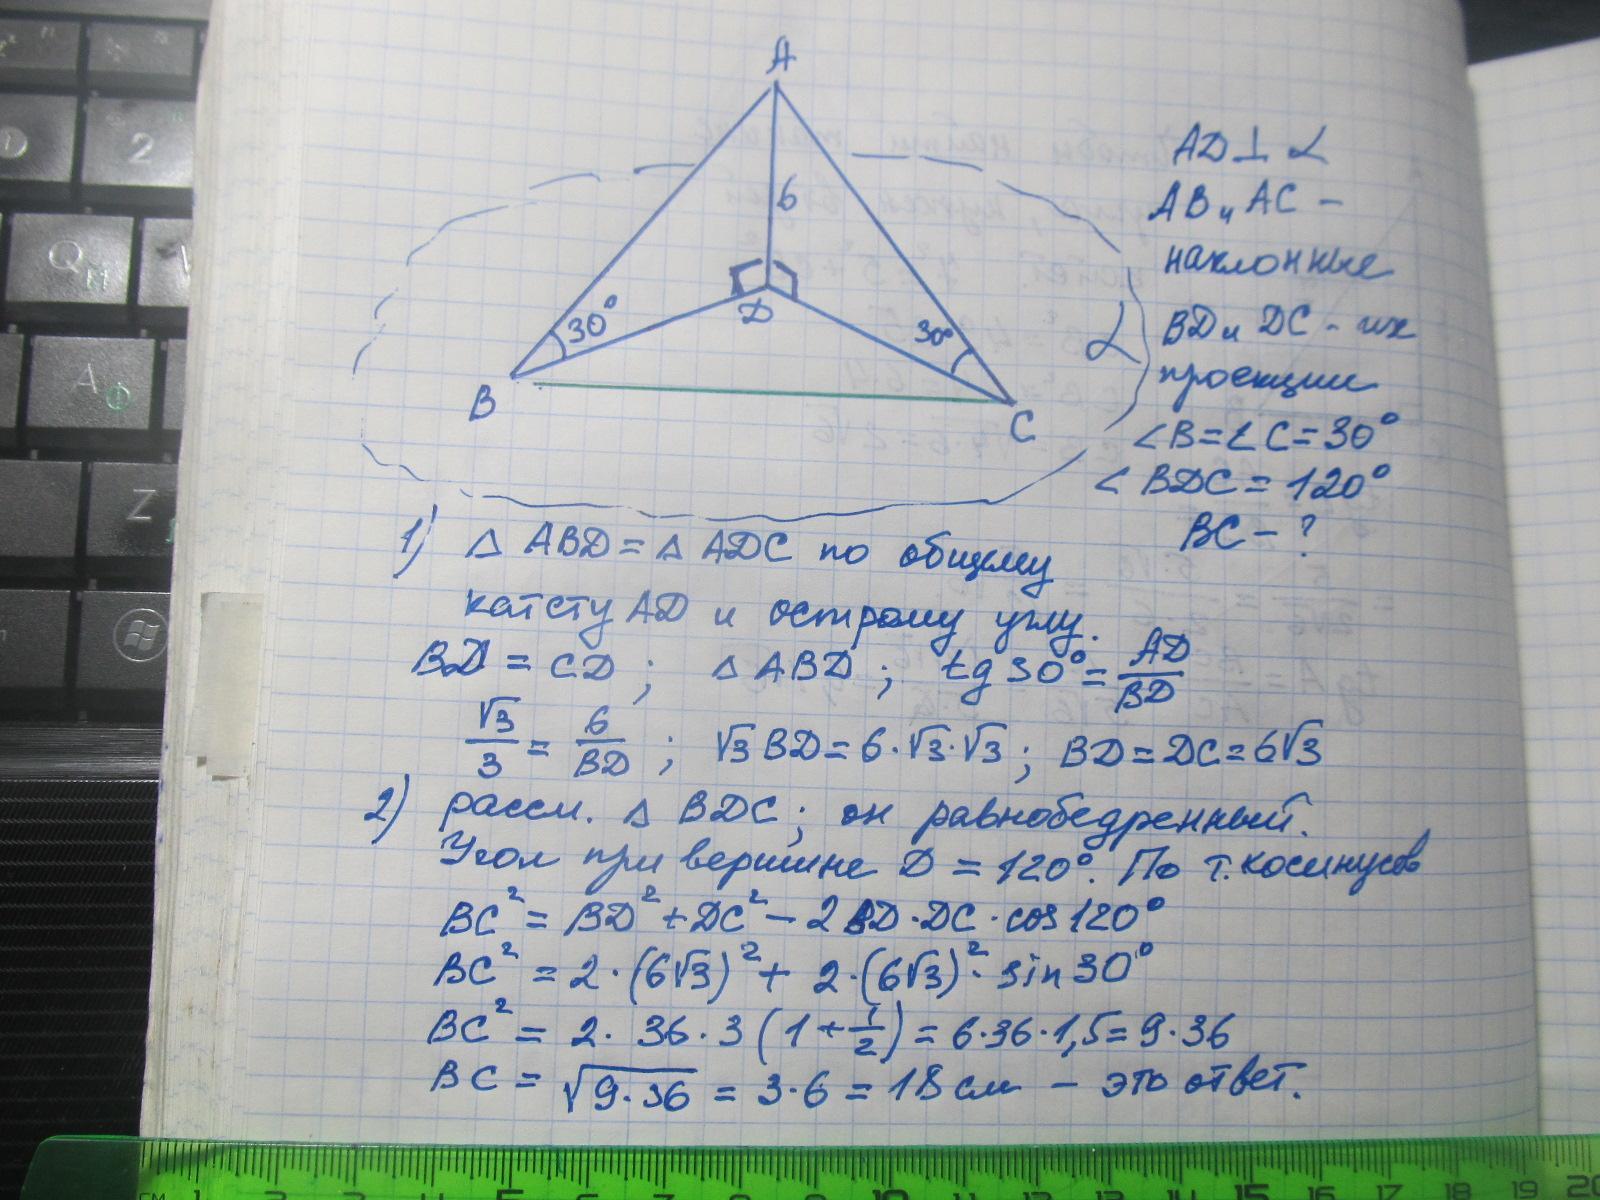 A
6
D
30°
30°
B
C
α
AD ⊥ α
AB и AC -
наклонные
BD и DC - их
проекции
∠B = ∠C = 30°
∠BDC = 120°
BC - ?
1) △ ABD = △ ADC по общему
катету AD и острому углу.
BD = CD ; △ ABD ; tg 30° = AD/BD
√3/3 = 6/BD ; √3 BD = 6·√3·√3 ; BD = DC = 6√3
2) рассм. △ BDC ; он равнобедренный.
Угол при вершине D = 120°. По т. косинусов
BC² = BD² + DC² - 2BD·DC·cos120°
BC² = 2·(6√3)² + 2·(6√3)²·sin30°
BC² = 2·36·3(1+1/2) = 6·36·1,5 = 9·36
BC = √9·36 = 3·6 = 18см - это ответ.
2
Q
Й
A
Ф
Z
см 1 2 3 4 5 6 7 8 9 10 11 12 13 14 15 16 17 18 19 20